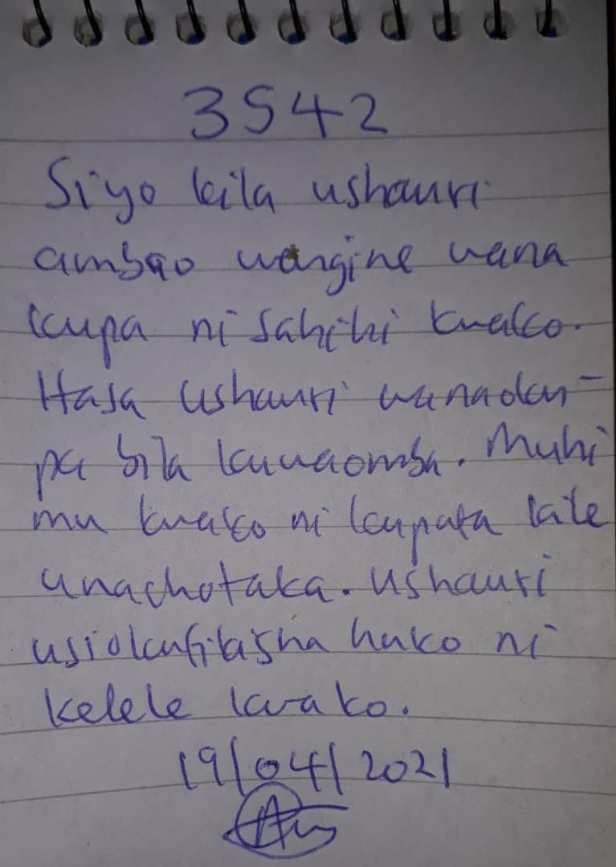 3542
Siyo kila ushauri
ambao wangine wana
kupa ni sahihi kwako.
Hasa ushauri wanaoku-
pa bila kuwaomba. Muhi
mu kwako ni kupata kile
unachotaka. Ushauri
usiokufikisha huko ni
kelele kwako.
19/04/2021